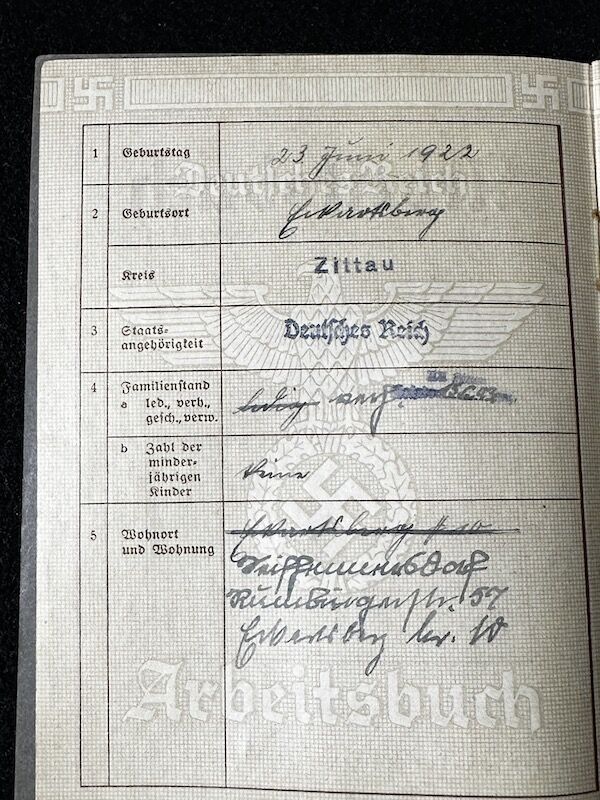 1 Geburtstag 23. Juni 1922
Deutsches Reich
2 Geburtsort Eckartsberg
Kreis Zittau
3 Staats-
angehörigkeit Deutsches Reich
4 Familienstand
a led., verh., ledig verh.
gesch., verw.
b Zahl der
minder-
jährigen
Kinder keine
5 Wohnort Eckartsberg
und Wohnung
Seifhennersdorf
Rumburgerstr. 57
Eckartsberg Nr. 10
Arbeitsbuch